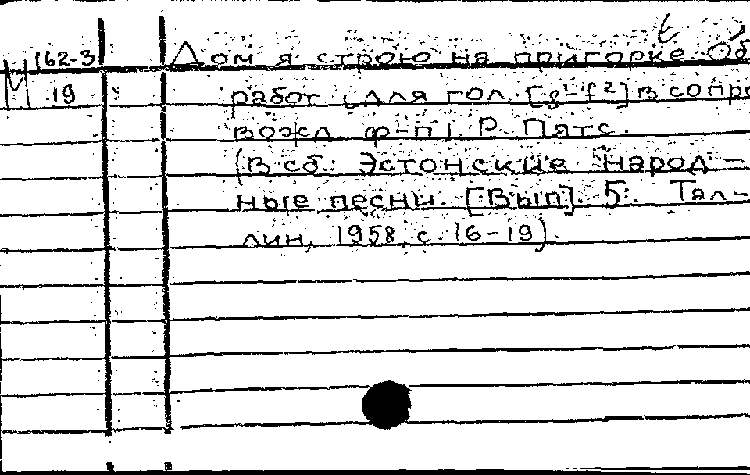 М 162-3
19
Дом я строю на пригорке. Об
работ. для гол. [g¹-f²] в сопро
вожд. ф-п. Р. Пятс.
(В сб.: Эстонские народ-
ные песни. [Вып]. 5. Тал-
лин, 1958, с. 16-19).